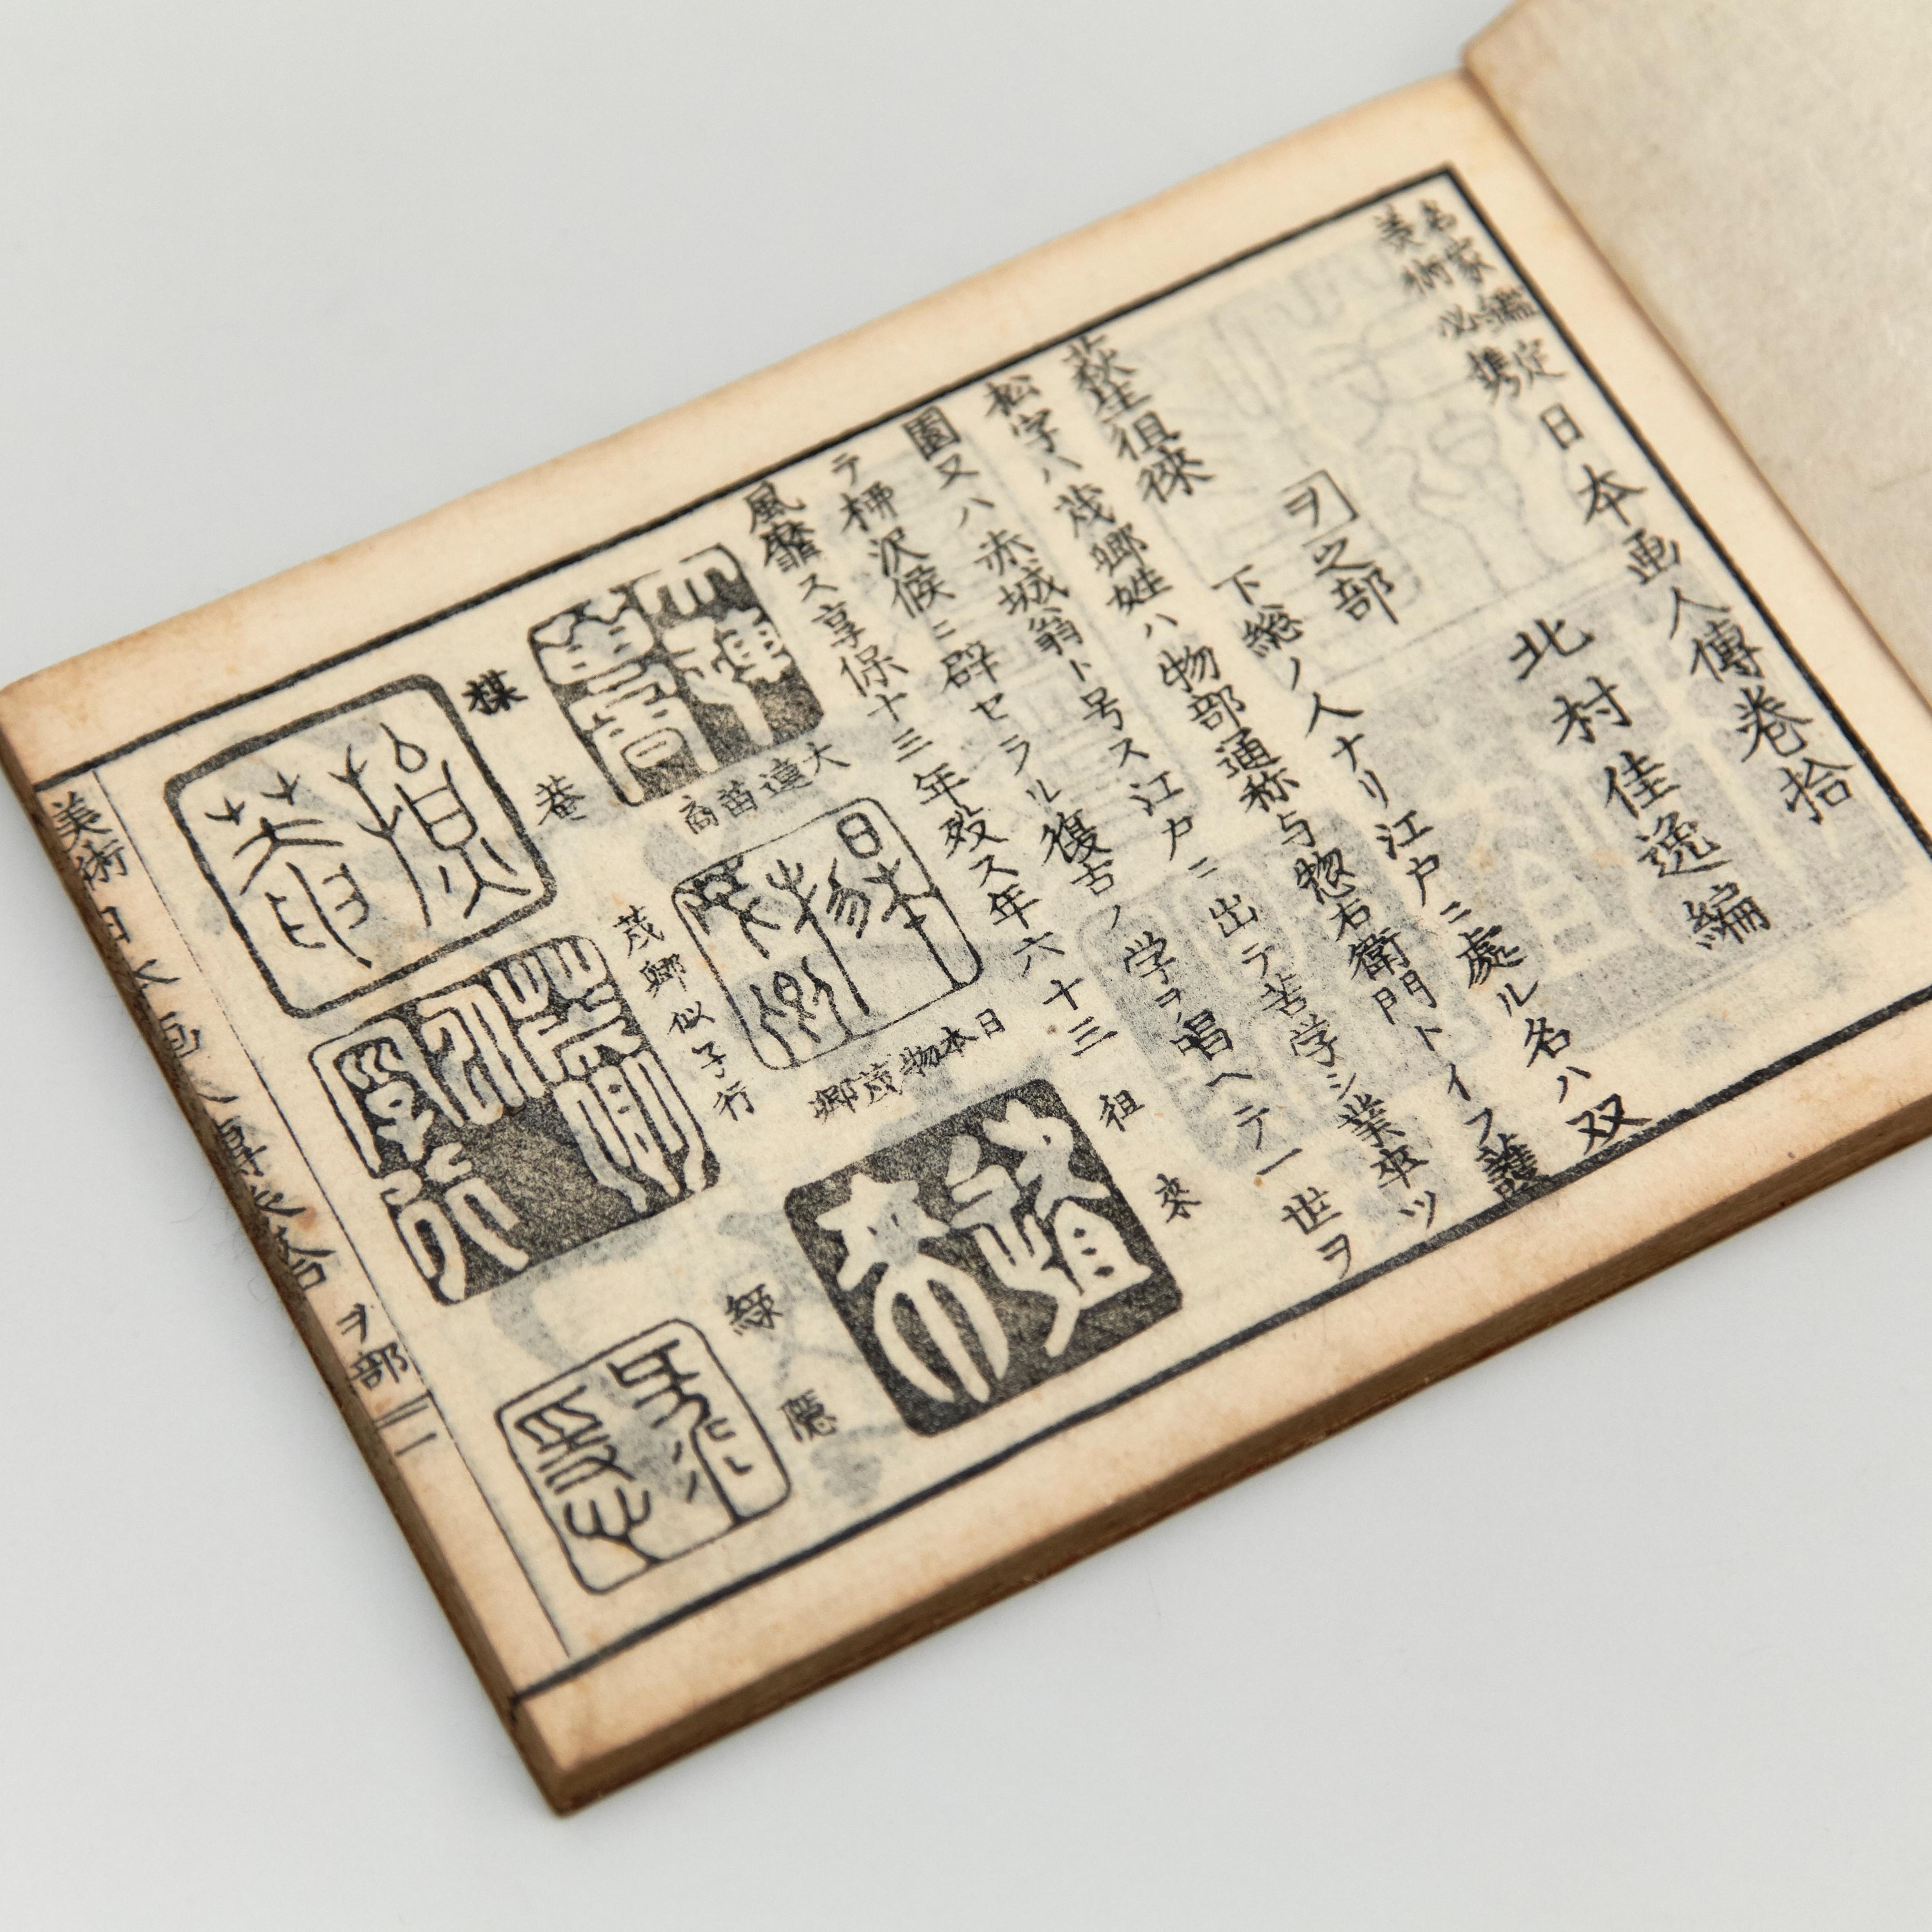 名家鑑定
美術必携
日本画人傳巻拾
北村佳逸編
ヲ之部
下総ノ人ナリ江戸ニ處ル名ハ双
荻生徂徠
松字ハ茂卿姓ハ物部通称与惣右衛門トイフ蘐
園又ハ赤城翁ト号ス江戸ニ出テ苦学シ業卒ツ
テ柳沢候ニ辟セラル復古ノ学ヲ唱ヘテ一世ヲ
風靡ス享保十三年歿ス年六十三
大遠苗裔
日本物茂卿
徂来
楳菴
茂卿似子行
緑隠
美術日本画人傳巻拾 ヲ部 一